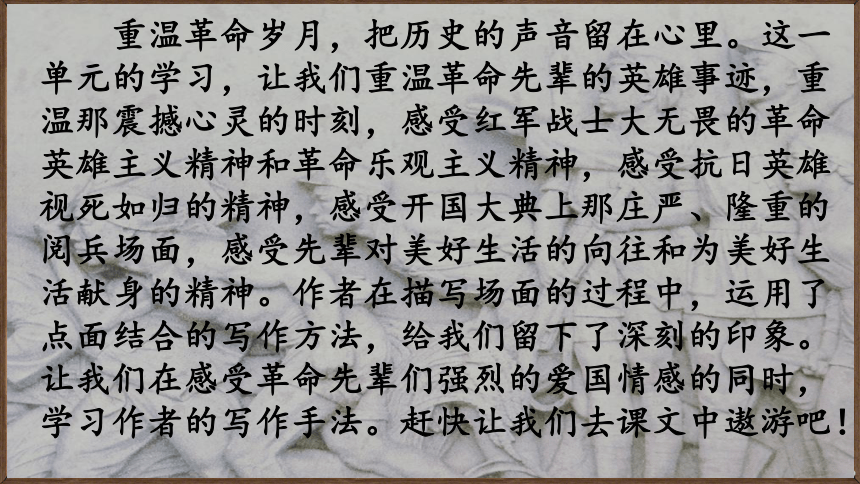 重温革命岁月，把历史的声音留在心里。这一
单元的学习，让我们重温革命先辈的英雄事迹，重
温那震撼心灵的时刻，感受红军战士大无畏的革命
英雄主义精神和革命乐观主义精神，感受抗日英雄
视死如归的精神，感受开国大典上那庄严、隆重的
阅兵场面，感受先辈对美好生活的向往和为美好生
活献身的精神。作者在描写场面的过程中，运用了
点面结合的写作方法，给我们留下了深刻的印象。
让我们在感受革命先辈们强烈的爱国情感的同时，
学习作者的写作手法。赶快让我们去课文中遨游吧！